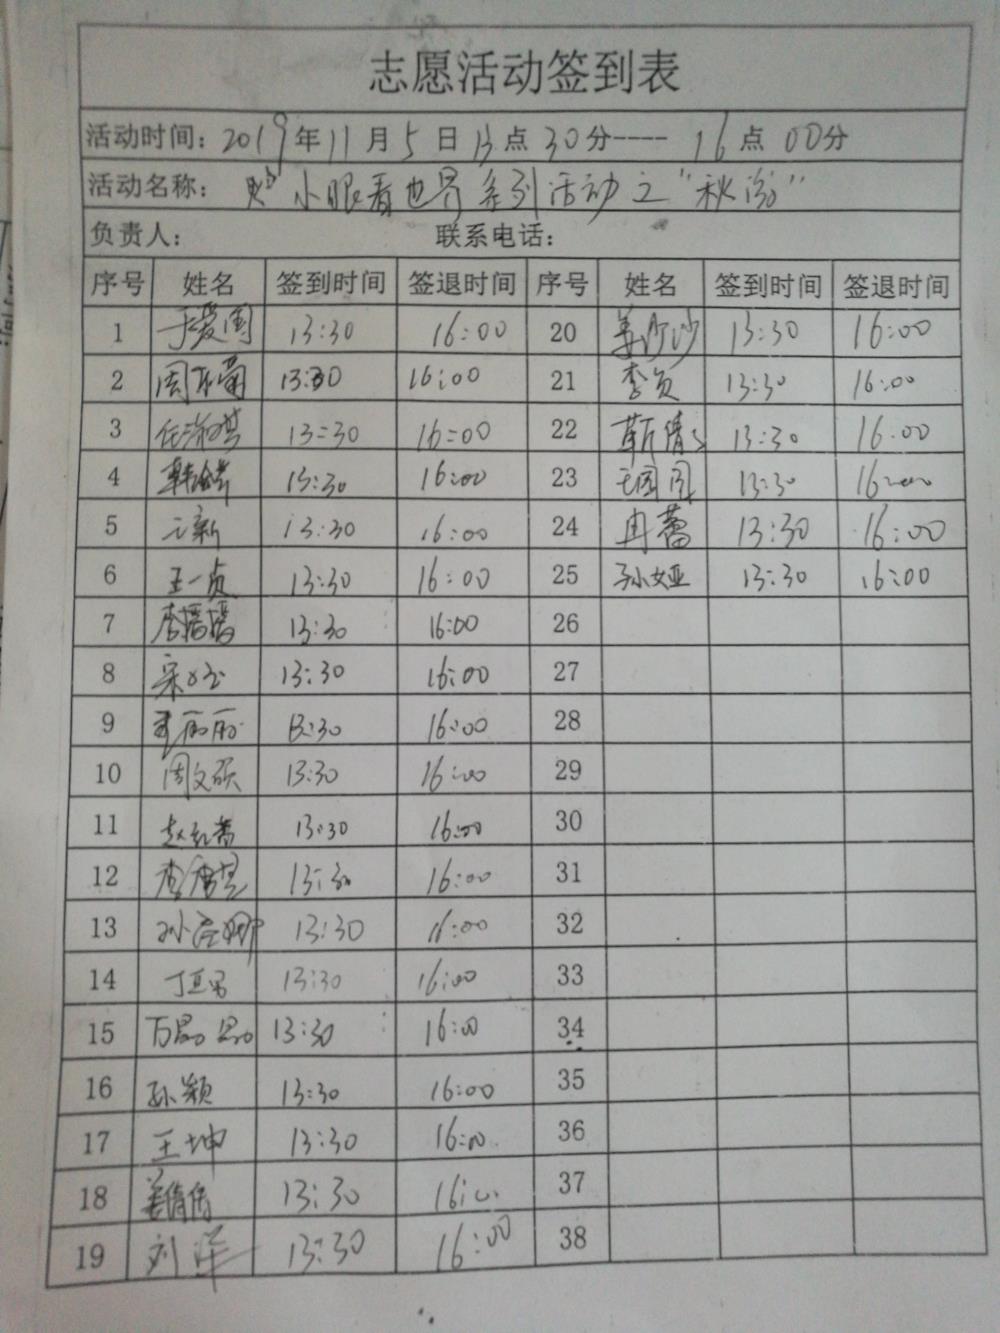 志愿活动签到表
活动时间：2019年11月5日13点30分---- 16点00分
活动名称： 小眼看世界系列活动之"秋游"
负责人： 联系电话：
序号 姓名 签到时间 签退时间 序号 姓名 签到时间 签退时间
1 于爱国 13:30 16:00 20 姜沙沙 13:30 16:00
2 13:30 16:00 21 13:30 16:00
3 任淑琪 13:30 16:00 22 靳倩 13:30 16:00
4 13:30 16:00 23 13:30 16:00
5 新 13:30 16:00 24 冉蕾 13:30 16:00
6 王一贞 13:30 16:00 25 孙娅 13:30 16:00
7 李 13:30 16:00 26
8 宋 13:30 16:00 27
9 丽丽 13:30 16:00 28
10 周文硕 13:30 16:00 29
11 赵 13:30 16:00 30
12 李 13:30 16:00 31
13 孙 娜 13:30 16:00 32
14 13:30 16:00 33
15 万 13:30 16:00 34
16 孙颖 13:30 16:00 35
17 王坤 13:30 16:00 36
18 姜倩倩 13:30 16:00 37
19 刘洋 13:30 16:00 38